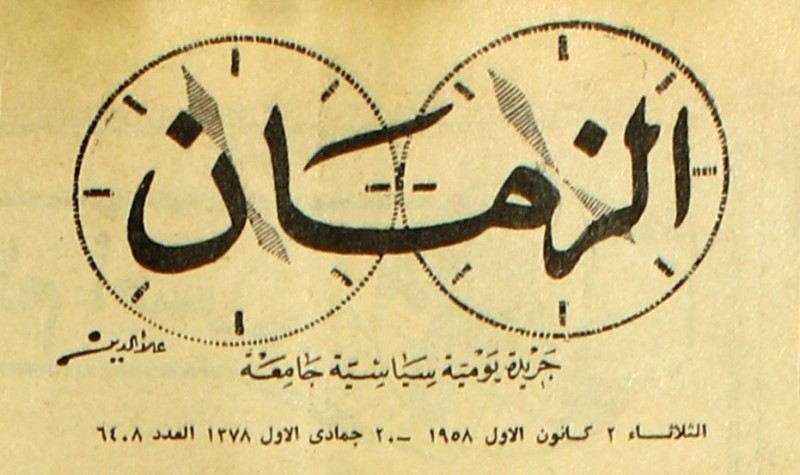 الزمان
علاء الدين
جريدة يومية سياسية جامعة
الثلاثاء ٢ كانون الاول ١٩٥٨ -٢٠ جمادى الاول ١٣٧٨ العدد ٦٤٠٨